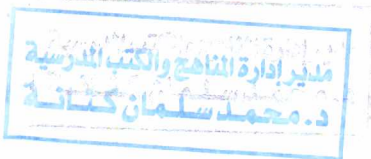 مدير إدارة المناهج والكتب المدرسية
د. محمد سلمان كنانة